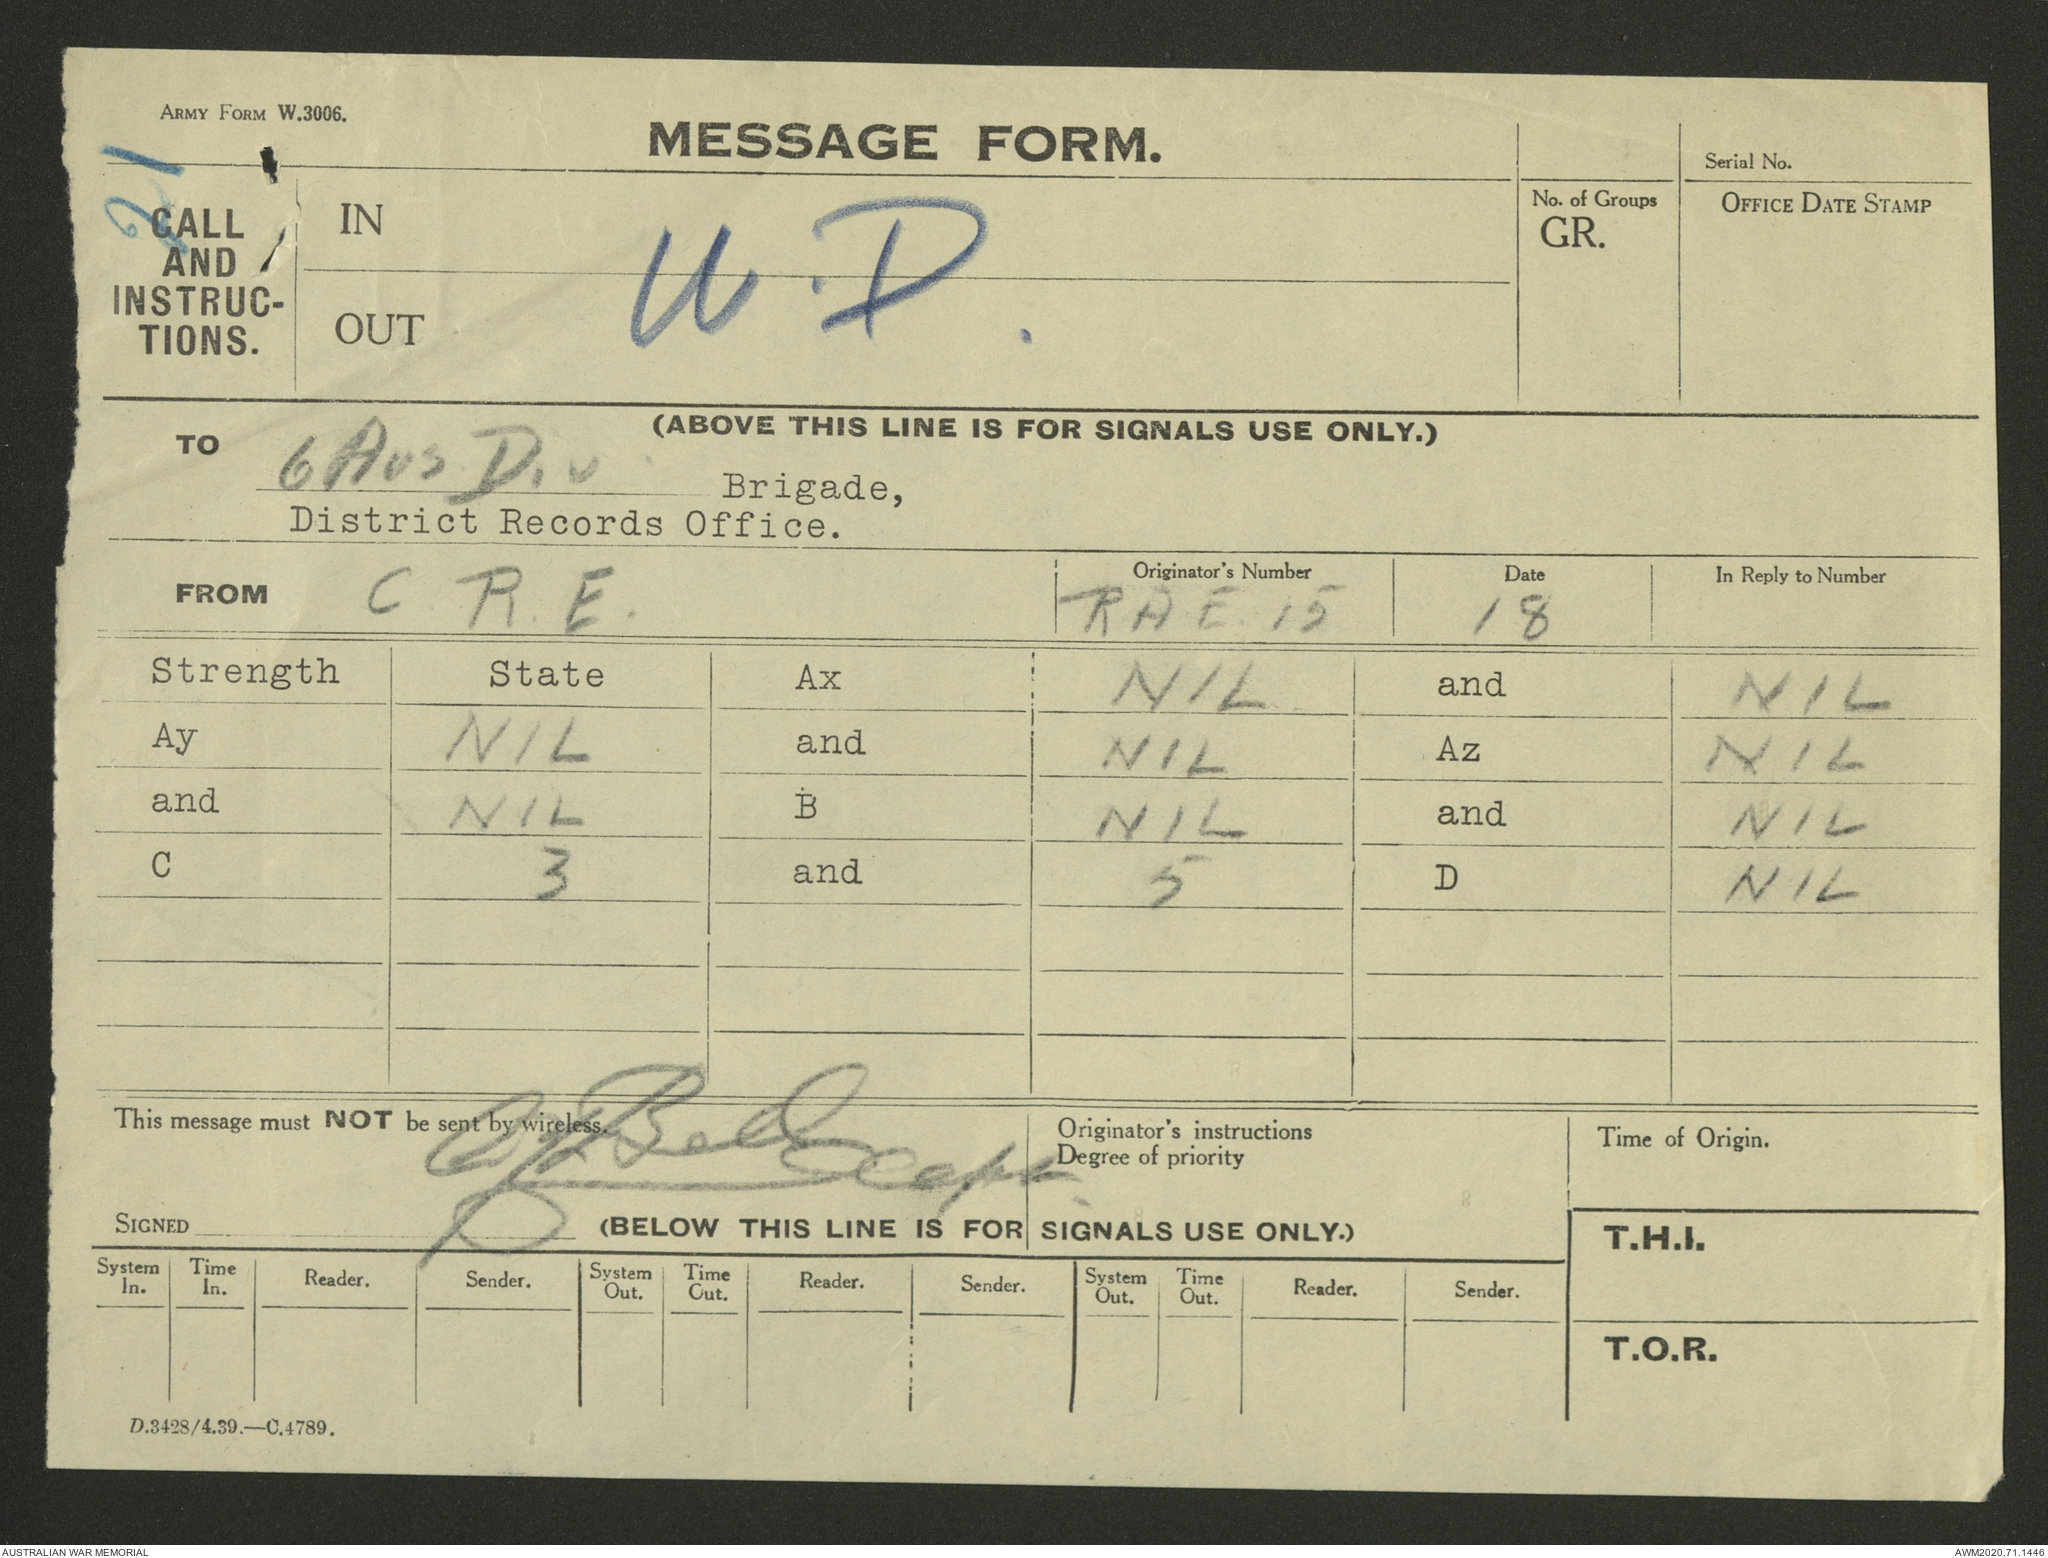 ARMY FORM W.3006.
MESSAGE FORM.
Serial No.
21
CALL
AND
INSTRUC-
TIONS.
IN
OUT
W.D.
No. of Groups
GR.
OFFICE DATE STAMP
(ABOVE THIS LINE IS FOR SIGNALS USE ONLY.)
TO
6 Aus Div. Brigade,
District Records Office.
FROM C. R. E.
Originator's Number
RAE. 15
Date
18
In Reply to Number
Strength State Ax NIL and NIL
Ay NIL and NIL Az NIL
and NIL B NIL and NIL
C 3 and 5 D NIL
This message must NOT be sent by wireless.
Bell Capt.
SIGNED
Originator's instructions
Degree of priority
Time of Origin.
(BELOW THIS LINE IS FOR SIGNALS USE ONLY.)
T.H.I.
T.O.R.
System In. Time In. Reader. Sender. System Out. Time Out. Reader. Sender. System Out. Time Out. Reader. Sender.
D.3428/4.39.—C.4789.
AUSTRALIAN WAR MEMORIAL
AWM2020.71.1446